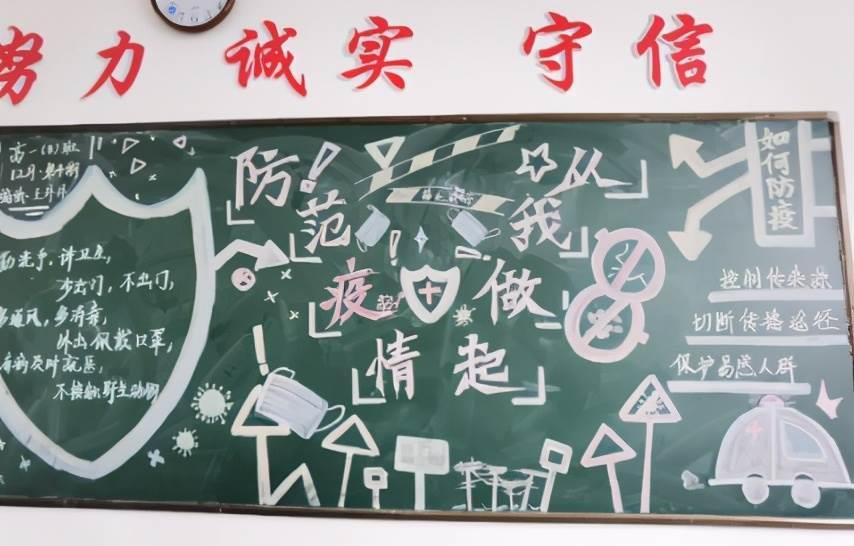 努力 诚实 守信
高一(8)班
防范疫情
从我做起
勤洗手,讲卫生,
少出门,不出门,
多通风,多消毒,
外出佩戴口罩,
有病及时就医,
不接触野生动物
如何防疫
控制传染源
切断传播途径
保护易感人群